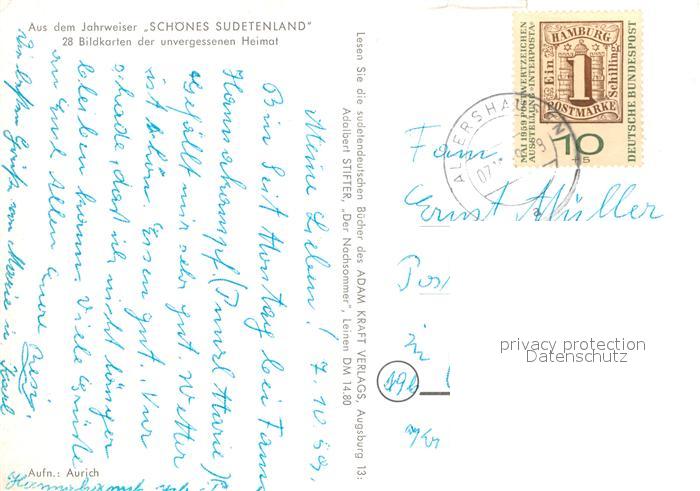 Aus dem Jahrweiser „SCHÖNES SUDETENLAND"
28 Bildkarten der unvergessenen Heimat
Meine Lieben! 7.10.59.
Bin seit Montag bei Fam.
gefällt mir sehr gut. Wetter
ist schön. Essen gut. Nur
schade, daß ich nicht länger
bleiben kann. Viele Grüße
an Euch Allen eure Resi.
Die besten Grüße von Marie u. Karl
Aufn.: Aurich
Lesen Sie die sudetendeutschen Bücher des ADAM KRAFT VERLAGS, Augsburg 13:
Adalbert STIFTER, „Der Nachsommer", Leinen DM 14.80
HAMBURG
Ein Schilling
1
POSTMARKE
MAI 1959 POSTWERTZEICHEN
AUSSTELLUNG »INTERPOSTA«
DEUTSCHE BUNDESPOST
10
+5
Fam.
Ernst Müller
in
privacy protection
Datenschutz